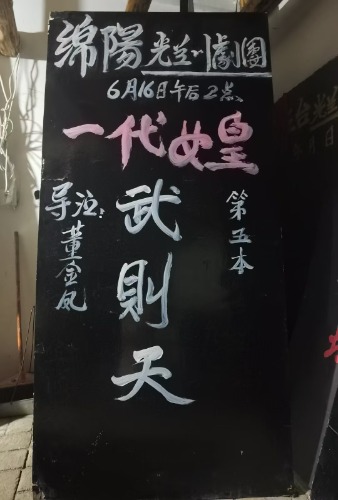 绵陽光兰川劇團
6月16日午后2点
一代女皇
第五本
武則天
导演:董金凤
台光兰
月日